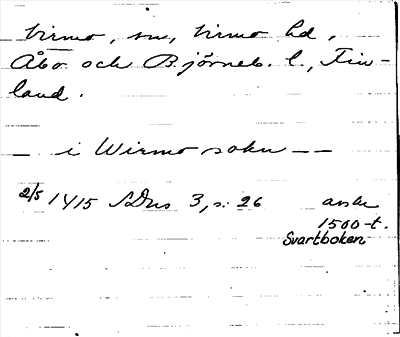 Virmo, sn, Virmo hd,
Åbo och Björneb. l., Fin-
land.
— i Wirmo sokn — —
2/5 1415 SDns 3, s. 26 avskr
1500-t.
Svartboken